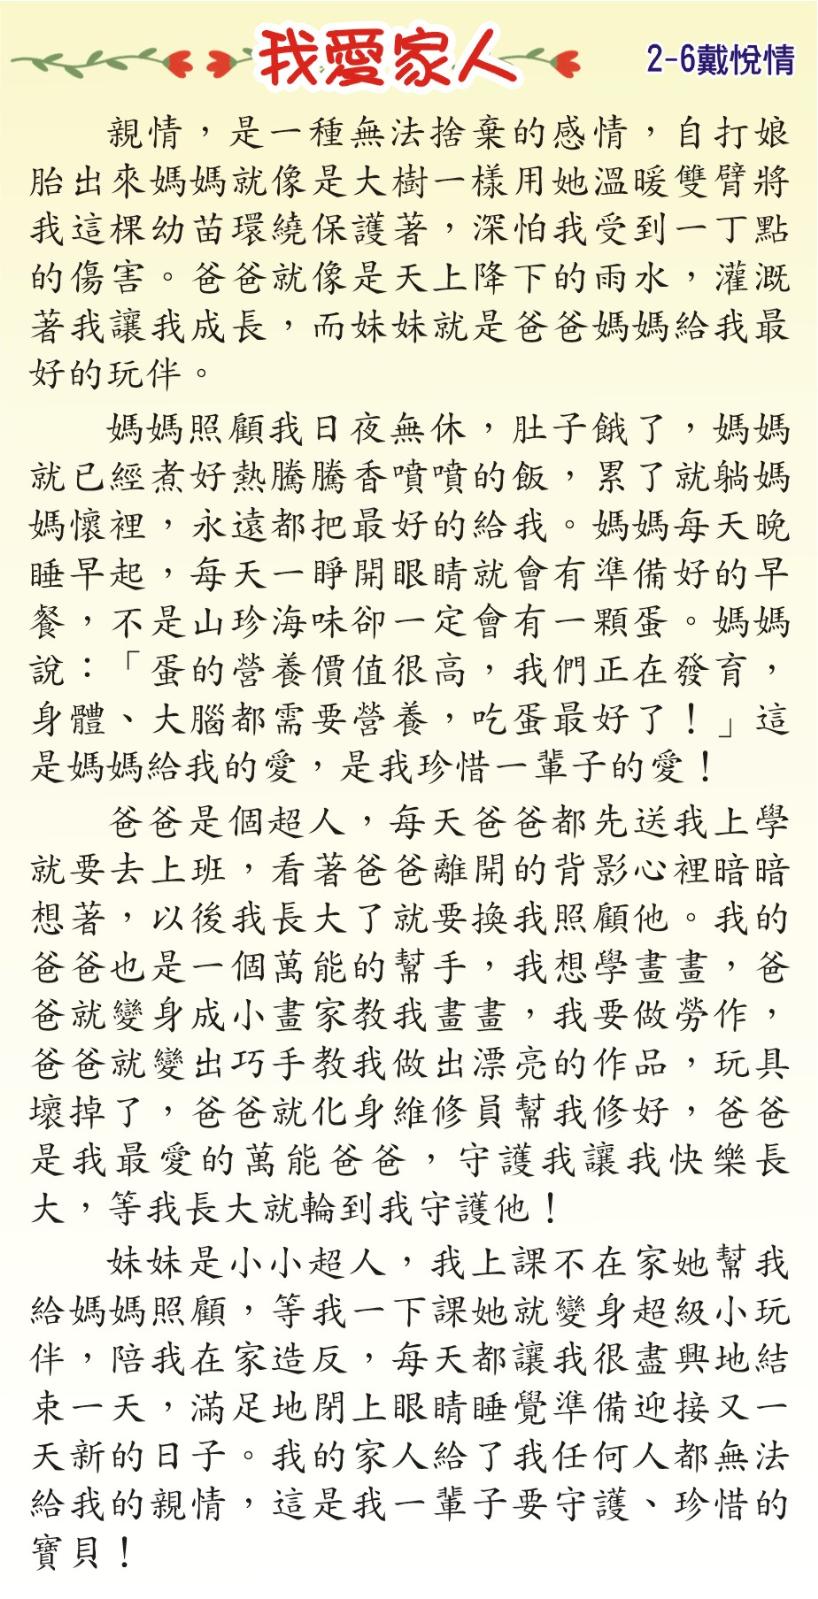 我愛家人
2-6戴悅情
親情，是一種無法捨棄的感情，自打娘
胎出來媽媽就像是大樹一樣用她溫暖雙臂將
我這棵幼苗環繞保護著，深怕我受到一丁點
的傷害。爸爸就像是天上降下的雨水，灌溉
著我讓我成長，而妹妹就是爸爸媽媽給我最
好的玩伴。
媽媽照顧我日夜無休，肚子餓了，媽媽
就已經煮好熱騰騰香噴噴的飯，累了就躺媽
媽懷裡，永遠都把最好的給我。媽媽每天晚
睡早起，每天一睜開眼睛就會有準備好的早
餐，不是山珍海味卻一定會有一顆蛋。媽媽
說：「蛋的營養價值很高，我們正在發育，
身體、大腦都需要營養，吃蛋最好了！」這
是媽媽給我的愛，是我珍惜一輩子的愛！
爸爸是個超人，每天爸爸都先送我上學
就要去上班，看著爸爸離開的背影心裡暗暗
想著，以後我長大了就要換我照顧他。我的
爸爸也是一個萬能的幫手，我想學畫畫，爸
爸就變身成小畫家教我畫畫，我要做勞作，
爸爸就變出巧手教我做出漂亮的作品，玩具
壞掉了，爸爸就化身維修員幫我修好，爸爸
是我最愛的萬能爸爸，守護我讓我快樂長
大，等我長大就輪到我守護他！
妹妹是小小超人，我上課不在家她幫我
給媽媽照顧，等我一下課她就變身超級小玩
伴，陪我在家造反，每天都讓我很盡興地結
束一天，滿足地閉上眼睛睡覺準備迎接又一
天新的日子。我的家人給了我任何人都無法
給我的親情，這是我一輩子要守護、珍惜的
寶貝！